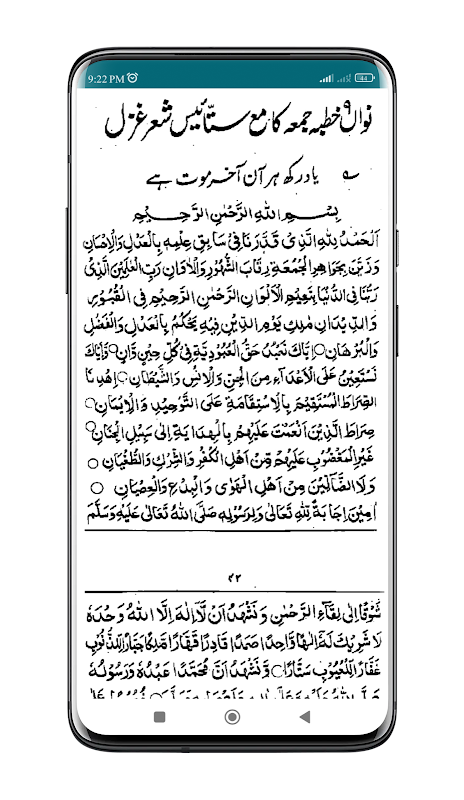 9:22 PM
نواں ۹ خطبہ جمعہ کا مع ستائیس شعر غزل
یاد رکھ ہر آن آخر موت ہے
بِسْمِ اللهِ الرَّحْمٰنِ الرَّحِيْمِ
اَلْحَمْدُ لِلّٰهِ الَّذِىْ قَدَّرَنَا فِىْ سَابِقِ عِلْمِهٖ بِالْعَدْلِ وَالْاِحْسَانِ
وَزَيَّنَ بِجَوَاهِرِ الْجُمُعَةِ رِقَابَ الشُّهُوْرِ وَالْاَوَانِ رَبِّ الْعٰلَمِيْنَ الَّذِىْ
رَبَّنَا فِى الدُّنْيَا بِنَعِيْمِ الْاَلْوَانِ الرَّحْمٰنِ الرَّحِيْمِ فِى الْقُبُوْرِ
وَالدِّيْدَانِ مٰلِكِ يَوْمِ الدِّيْنِ فِيْهِ يَحْكُمُ بِالْعَدْلِ وَالْفَضْلِ
وَالْبُرْهَانِ ○ اِيَّاكَ نَعْبُدُ حَقَّ الْعُبُوْدِيَّةِ فِىْ كُلِّ حِيْنٍ وَّاٰنٍ ○ وَاِيَّاكَ
نَسْتَعِيْنُ عَلَى الْاَعْدَآءِ مِنَ الْجِنِّ وَالْاِنْسِ وَالشَّيْطَانِ ○ اِهْدِنَا
الصِّرَاطَ الْمُسْتَقِيْمَ بِالْاِسْتِقَامَةِ عَلَى التَّوْحِيْدِ وَالْاِيْمَانِ ○
صِرَاطَ الَّذِيْنَ اَنْعَمْتَ عَلَيْهِمْ بِالْهِدَايَةِ اِلٰى سَبِيْلِ الْجِنَانِ ○
غَيْرِ الْمَغْضُوْبِ عَلَيْهِمْ مِّنْ اَهْلِ الْكُفْرِ وَالشِّرْكِ وَالطُّغْيَانِ ○
وَلَا الضَّآلِّيْنَ مِنْ اَهْلِ الْهَوٰى وَالْبِدَعِ وَالْعِصْيَانِ ○
اٰمِيْنَ اِجَابَةً لِلّٰهِ تَعَالٰى وَلِرَسُوْلِهٖ صَلَّى اللهُ تَعَالٰى عَلَيْهِ وَسَلَّمَ
شَوْقًا اِلٰى لِقَآءِ الرَّحْمٰنِ وَنَشْهَدُ اَنْ لَّآ اِلٰهَ اِلَّا اللهُ وَحْدَهٗ
لَا شَرِيْكَ لَهٗ اِلٰهًا وَّاحِدًا صَمَدًا قَادِرًا قَهَّارًا مَّلِكًا جَبَّارًا لِلذُّنُوْبِ
غَفَّارًا لِلْعُيُوْبِ سَتَّارًا ○ وَنَشْهَدُ اَنَّ مُحَمَّدًا عَبْدُهٗ وَرَسُوْلُهٗ